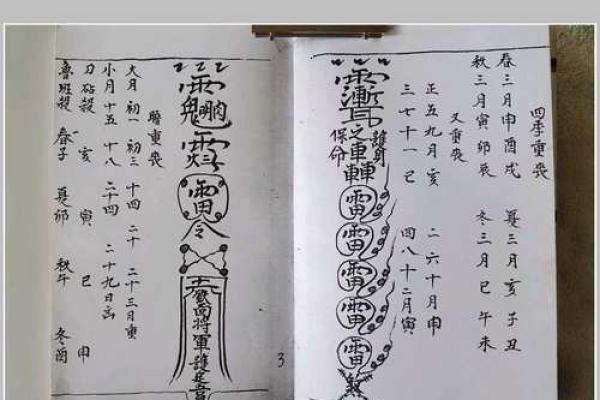 四季重喪
春三月申酉戌 夏三月亥子丑
秋三月寅卯辰 冬三月巳午未
又重喪
正五九月亥 二六十月申
三七十一巳 四八十二月寅
護身
保命
雷
雷
雷
雷
雷
3
雷
令
將軍護
重喪
大月 初一 初三 十四 二十 二十三月重
小月 十五 十八 二十四 二十九日
刀砧殺 亥 寅 巳 申
魯班殺 春子 夏卯 秋午 冬酉